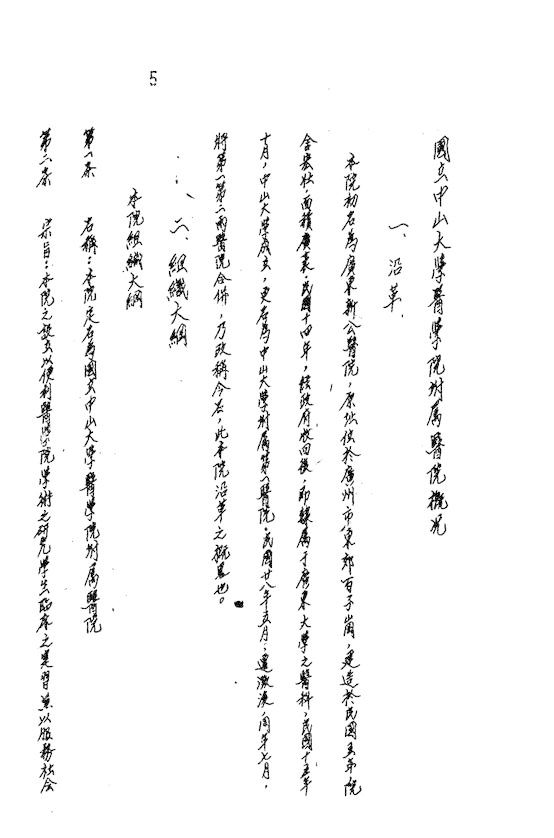 5
國立中山大學醫學院附属醫院概况
一、沿革.
本院初名為廣東新公醫院，原址位於廣州市東郊百子崗，建造於民國五年院
舍宏壯，面積廣袤，民國十四年，經政府收回後，即隸属于廣東大學之醫科，民國十五年
十月，中山大學成立，更名為中山大學附属第一醫院，民國廿八年五月，遷澂江，同年七月，
將第一第二兩醫院合併，乃改稱今名，此本院沿革之概畧也。
二、組織大綱
本院組織大綱
第一条 名稱：本院定名為國立中山大學醫學院附属醫院
第二条 宗旨：本院之設立以便利醫學院學術之研究學生臨床之實習並以服務社会